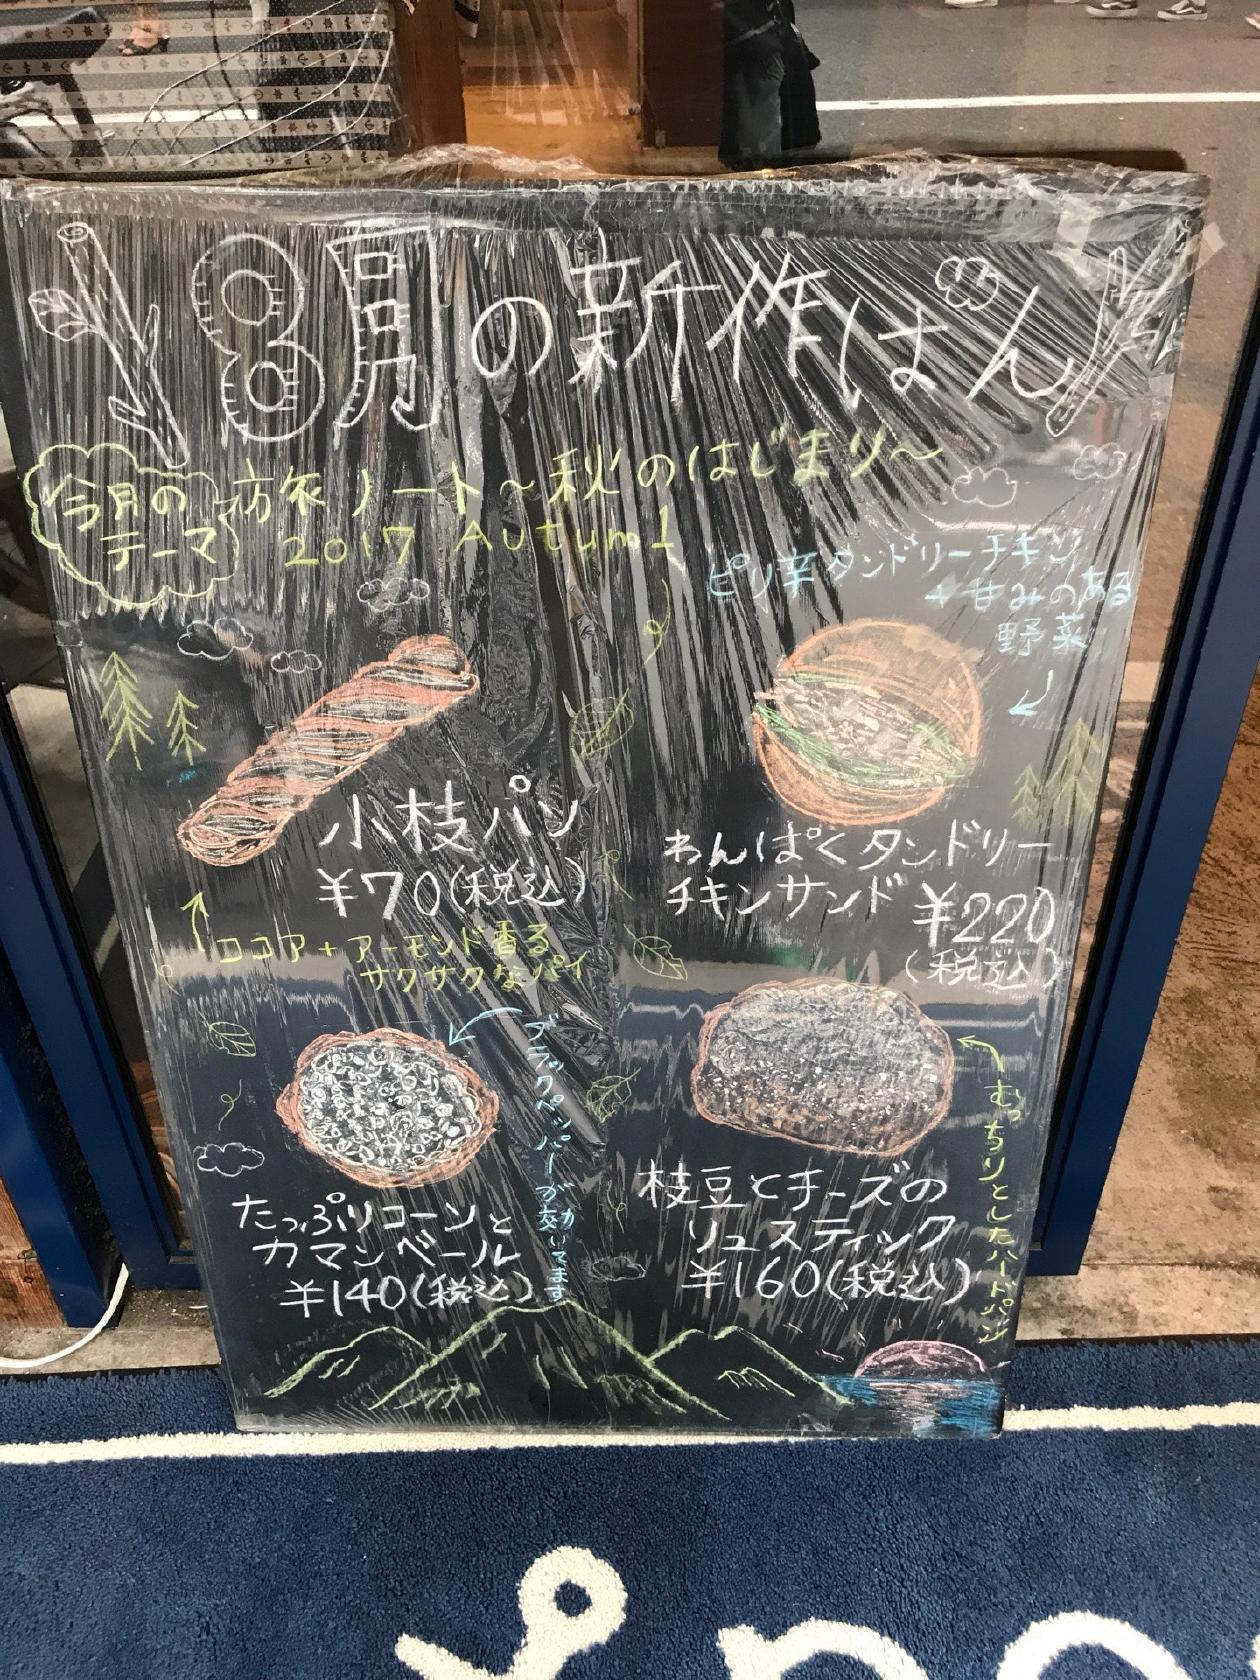 8月の新作ぱん
今月の
テーマ
旅ノート～秋のはじまり～
2017 Autum1
ピリ辛タンドリーチキン
+甘みのある
野菜
小枝パン
¥70(税込)
ココア+アーモンド香る
サクサクなパイ
わんぱくタンドリー
チキンサンド ¥220
(税込)
ブラックペッパーが効いてます
たっぷりコーンと
カマンベール
¥140(税込)
むっちりとしたハードパン
枝豆とチーズの
リュスティック
¥160(税込)